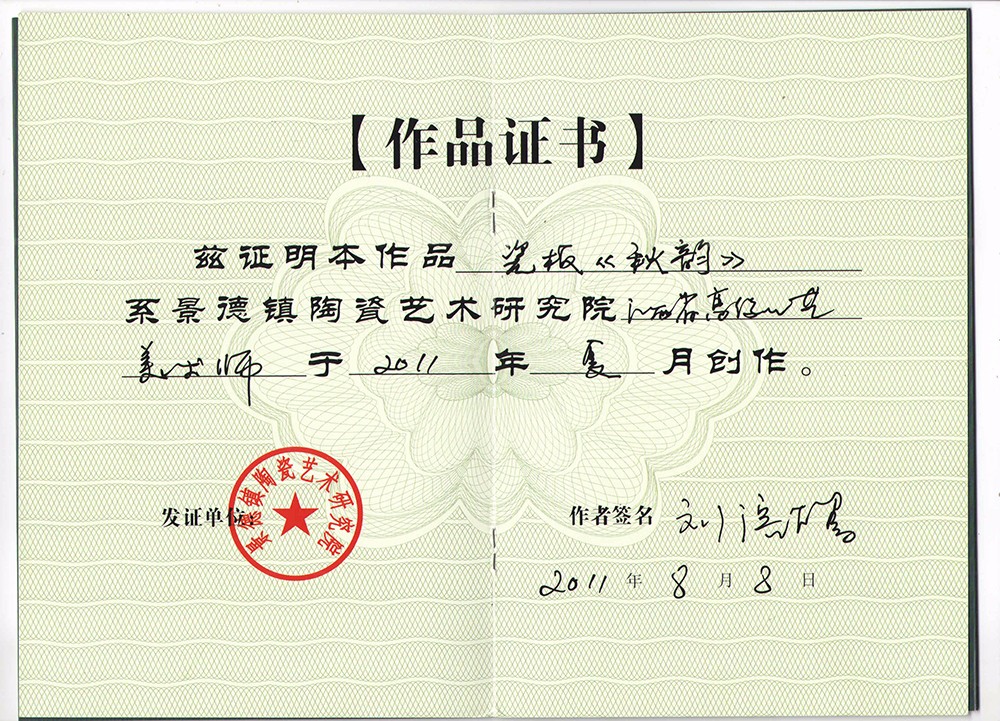 【作品证书】
兹证明本作品 瓷板《秋韵》
系景德镇陶瓷艺术研究院江西省高级工艺
美术师 于 2011 年 夏 月创作。
景德镇陶瓷艺术研究院
发证单位:
作者签名 刘
2011 年 8 月 8 日